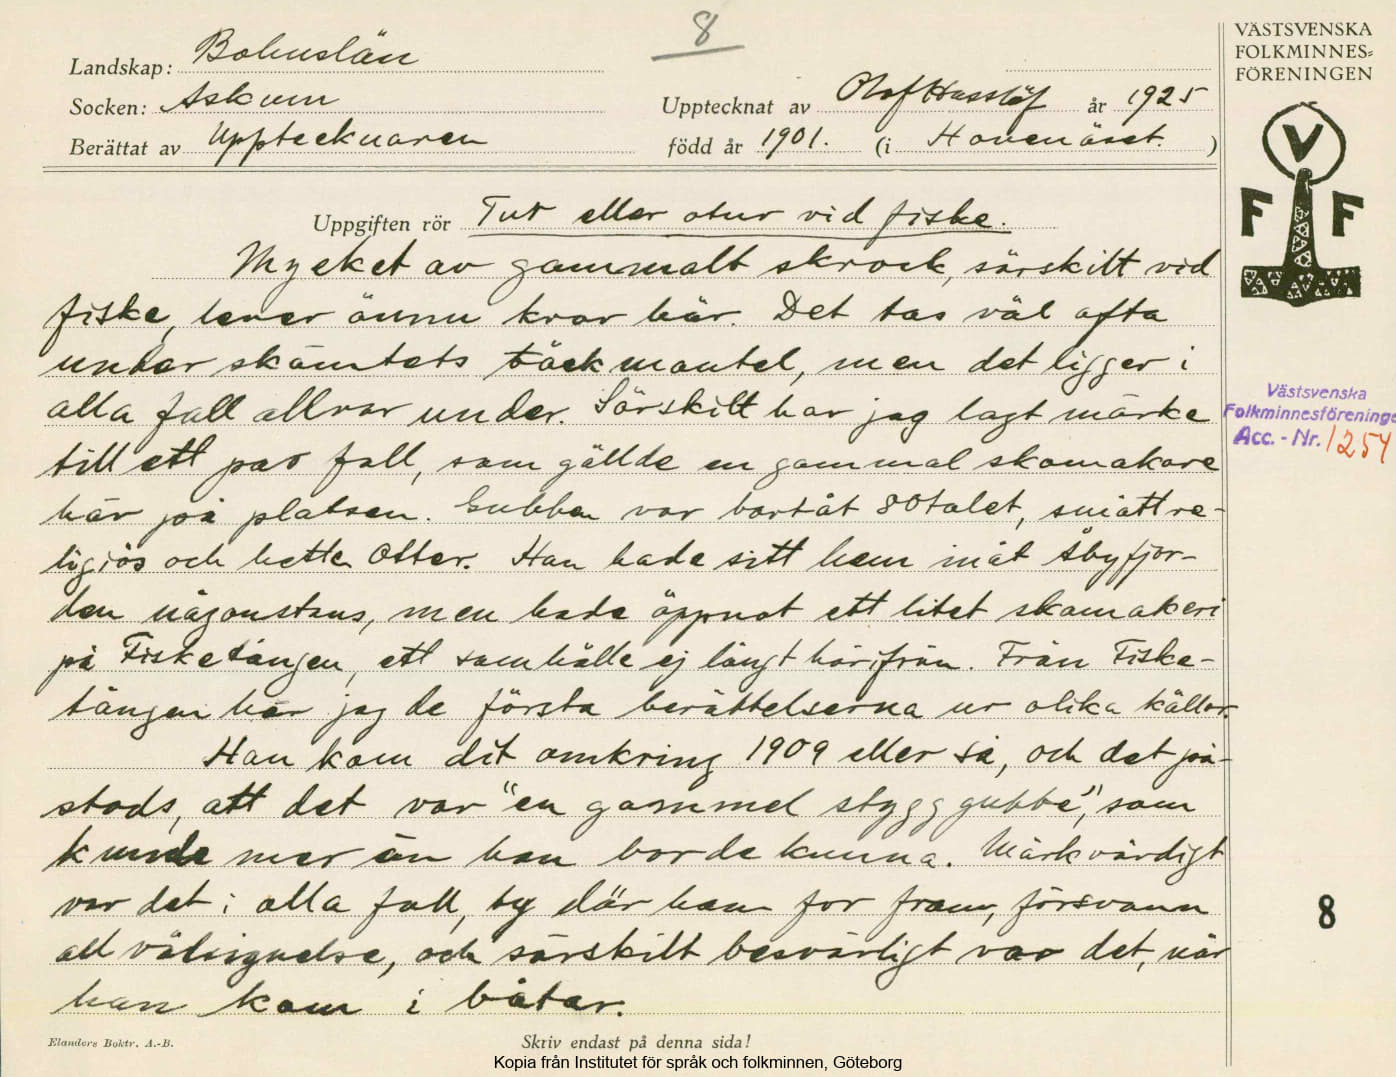 8
VÄSTSVENSKA
FOLKMINNES=
FÖRENINGEN
Landskap: Bohuslän
Socken: Askum
Upptecknat av Olof Hasslöf år 1925
Berättat av Upptecknaren
född år 1901. (i Hovenäset. )
V
F F
Uppgiften rör Tur eller otur vid fiske.
Mycket av gammalt skrock, särskilt vid
fiske, lever ännu kvar här. Det tas väl ofta
under skämtets täckmantel, men det ligger i
alla fall allvar under. Särskilt har jag lagt märke
till ett par fall, som gällde en gammal skomakare
här på platsen. Gubben var bortåt 80talet, smått re-
ligiös och hette Otter. Han hade sitt hem inåt Åbyfjor-
den någonstans, men hade öppnat ett litet skomakeri
på Fisketången, ett samhälle ej långt härifrån. Från Fiske-
tången har jag de första berättelserna ur olika källor.
Han kom dit omkring 1909 eller så, och det på-
stods, att det var "en gammel stygg gubbe", som
kunde mer än han borde kunna. Märkvärdigt
var det i alla fall, ty där han for fram, försvann
all välsignelse, och särskilt besvärligt var det, när
han kom i båtar.
Västsvenska
Folkminnesförening
Acc. - Nr. 1254
8
Elanders Boktr. A.-B.
Skriv endast på denna sida!
Kopia från Institutet för språk och folkminnen, Göteborg